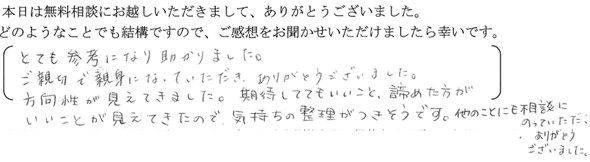 本日は無料相談にお越しいただきまして、ありがとうございました。
どのようなことでも結構ですので、ご感想をお聞かせいただけましたら幸いです。
とても参考になり助かりました。
ご親切で親身になっていただき、ありがとうございました。
方向性が見えてきました。期待してでもいいこと、諦めた方が
いいことが見えてきたので、気持ちの整理がつきそうです。他のことにも相談に
のっていただき、
ありがとう
ございました。